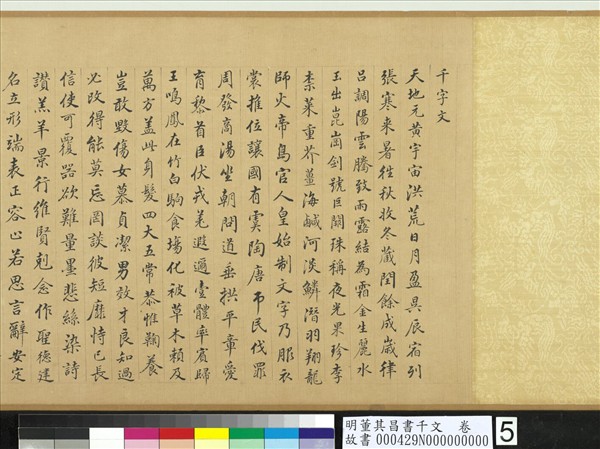 千字文
天地元黃宇宙洪荒日月盈昃辰宿列
張寒来暑徃秋收冬藏閏餘成歲律
吕調陽雲騰致雨露結為霜金生麗水
玉出崑崗劍號巨闕珠稱夜光果珍李
柰菜重芥薑海鹹河淡鱗潛羽翔龍
師火帝鳥官人皇始制文字乃服衣
裳推位讓國有虞陶唐弔民伐罪
周發商湯坐朝問道垂拱平章愛
育黎首臣伏戎羌遐邇壹體率賓歸
王鳴鳳在竹白駒食場化被草木賴及
萬方盖此身髮四大五常恭惟鞠養
豈敢毀傷女慕貞潔男效才良知過
必改得能莫忘罔談彼短靡恃己長
信使可覆器欲難量墨悲絲染詩
讚羔羊景行維賢剋念作聖德建
名立形端表正容止若思言辭安定
明董其昌書千文 卷
故書 000429N000000000
5